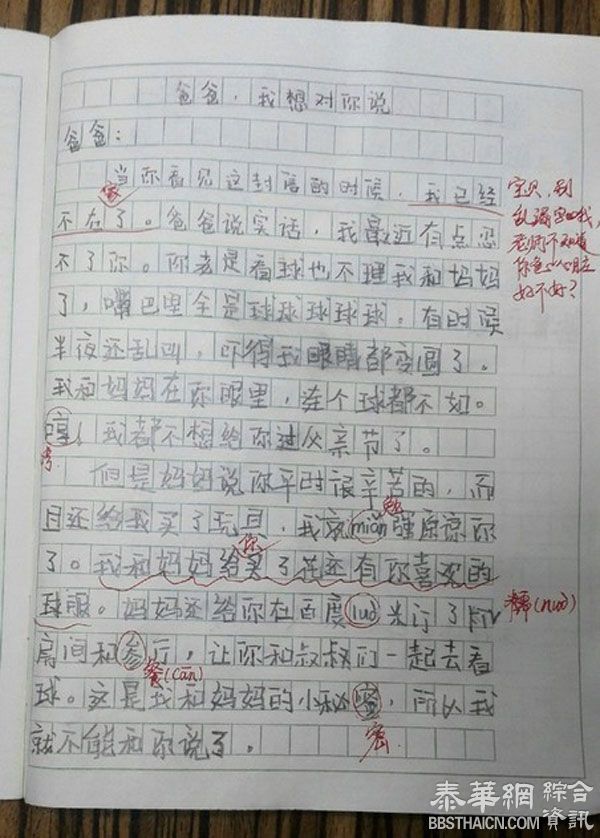 爸爸，我想对你说
爸爸：
当你看见这封信的时候，我已经
不在了。爸爸说实话，我最近有点忍
不了你。你老是看球也不理我和妈妈
了，嘴巴里全是球球球球球。有时候
半夜还乱叫，吓得我眼睛都变圆了。
我和妈妈在你眼里，连个球都不如。
哼！我都不想给你过父亲节了。
但是妈妈说你平时很辛苦的，而
且还给我买了玩具，我就miǎn强原谅你
了。我和妈妈给买了花还有你喜欢的
球服。妈妈还给你在百度luò米订了KTV
房间和参厅，让你和叔叔们一起去看
球。这是我和妈妈的小秘蜜，所以我
就不能和你说了。
宝贝，别
乱
老师不知道
你爸
好不好？
勉
你
糯(nuò)
餐(cān)
密
泰華網 綜合
BBSTHAICN.COM 資訊